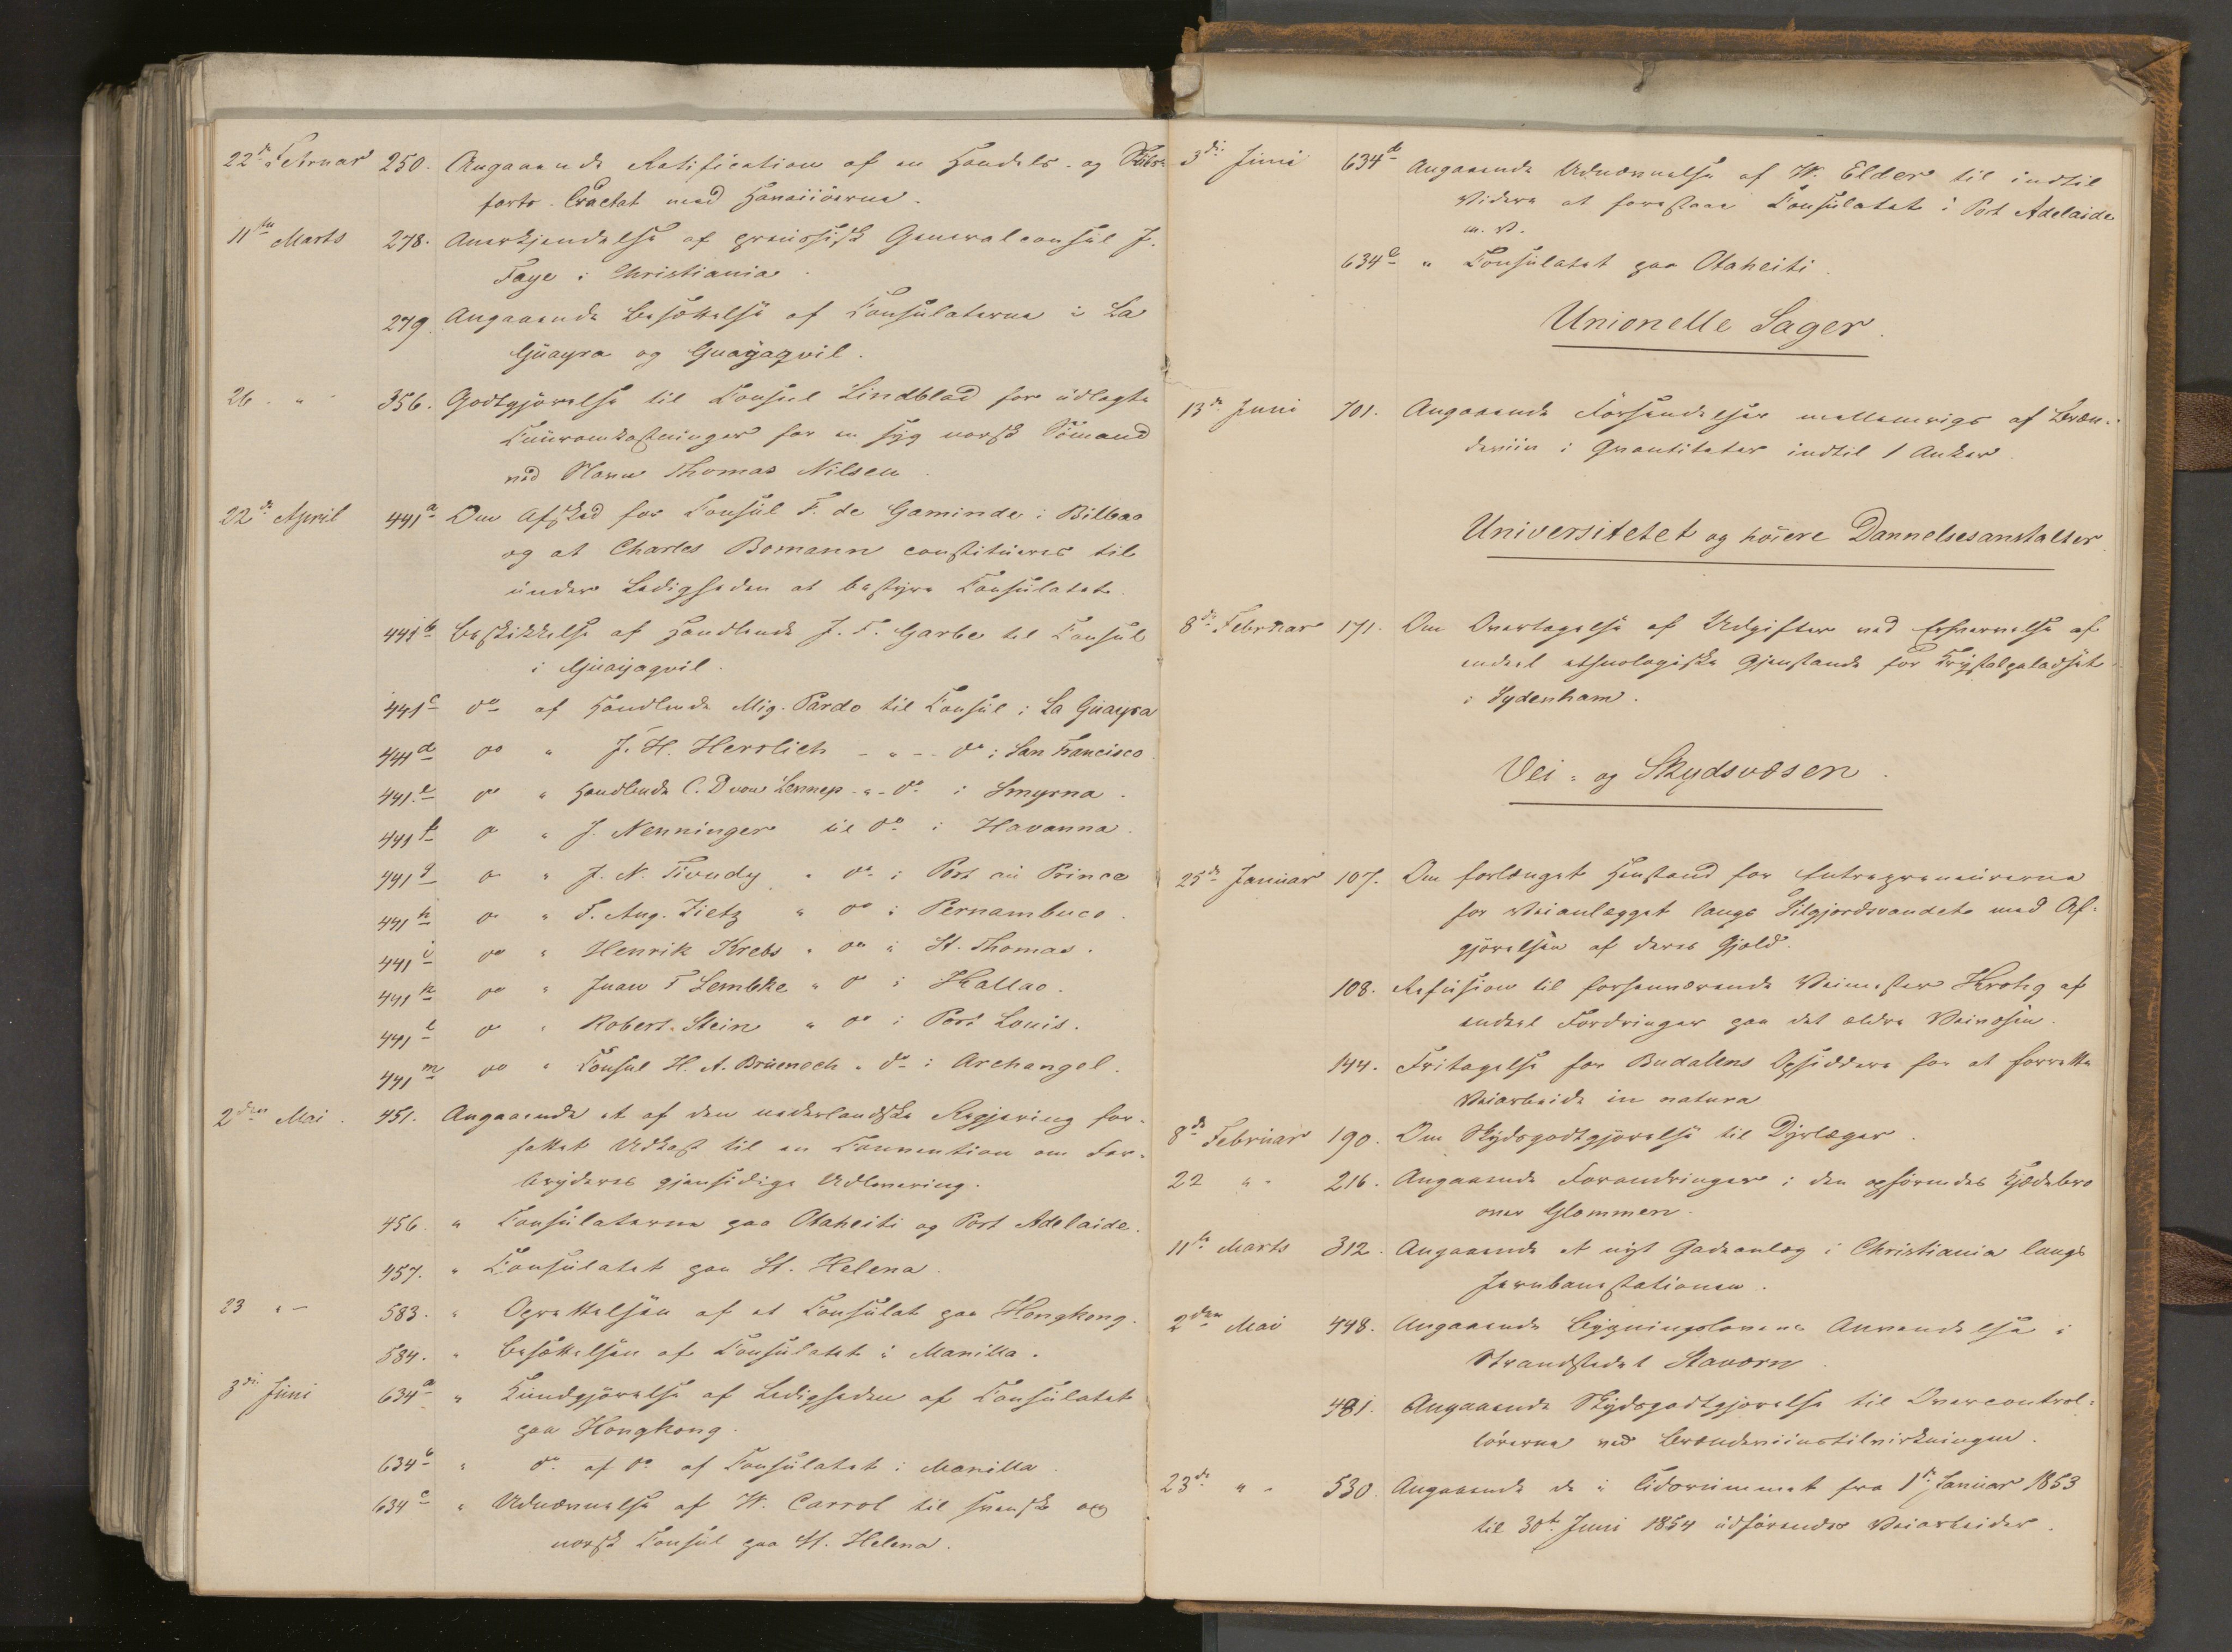 22de Februar 250. Angaaende Ratification af en Handels- og Skibs-
farts-Tractat med Hawaiiöerne.
11te Marts 278. Anerkjendelse af preussisk Generalconsul J.
Faye i Christiania.
279. Angaaende Besættelse af Consulaterne i La
Guayra og Guayaqvil.
26 " 356. Godtgjörelse til Consul Lindblad for udlagte
Kuuromkostninger for en syg norsk Sömand
ved Navn Thomas Nilsen.
22de April 441a Om Afsked for Consul F. de Gaminde i Bilbao
og at Charles Bomann constitueres til
under Ledigheden at bestyre Consulatet.
441b Beskikkelse af Handlende J. F. Garbe til Consul
i Guayaqvil.
441c do af Handlende Mig. Pardo til Consul i La Guayra
441d do " J. H. Herrlich - " - do i San Francisco
441e do " Handlende C. D von Lennep - " - do i Smyrna.
441f do " J. Nenninger til do i Havanna.
441g do " J. N. Tivudy " do i Port au Prince
441h do " F. Aug. Zietz " do i Pernambuco.
441i do " Henrik Krebs " do i St. Thomas.
441k do " Juan F Lembke " do i Kallao.
441l do " Robert Stein " do i Port Louis.
441m do " Consul H. A. Brüenech " do i Archangel.
2den Mai. 451. Angaaende et af den nederlandske Regjering for-
fattet Udkast til en Convention om For-
bryderes gjensidige Udlevering.
456. " Consulaterne paa Otaheiti og Port Adelaide.
457. " Consulatet paa St. Helena.
23 " - 583. " Oprettelsen af et Consulat paa Hongkong.
584. " Besættelsen af Consulatet i Manilla.
3die Juni 634a " Kundgjörelse af Ledigheden af Consulatet
paa Hongkong.
634b " do af do af Consulatet i Manilla.
634c " Udnævnelse af W. Carrol til svensk og
norsk Consul paa St. Helena.
3die Juni 634d Angaaende Udnævnelse af W. Elder til indtil
Videre at forestaae Consulatet i Port Adelaide
m. v.
634e " Consulatet paa Otaheiti.
Unionelle Sager.
13de Juni 701. Angaaende Forsendelser mellemrigs af Bræn-
deviin i Qvantiteter indtil 1 Anker.
Universitetet og höiere Dannelsesanstalter.
8de Februar 171. Om Overtagelse af Udgifter ved Erhvervelse af
endeel ethnologiske Gjenstande for Krystalpaladset
i Sydenham.
Vei- og Skydsvæsen.
25de Januar 107. Om forlænget Henstand for Entrepreneurerne
for Veianlægget langs Silgjordsvandet med Af-
gjörelsen af deres Gjæld.
108. Refusion til forhenværende Veimester Krohg af
endeel Fordringer paa det ældre Veivæsen.
144. Fritagelse for Budalens Opsiddere for at forrette
Veiarbeide in natura
8de Februar 190. Om Skydsgodtgjörelse til Dyrlæger.
22 " - 216. Angaaende Forandringer i den opförendes Kjædebro
over Glommen.
11te Marts 312. Angaaende et nyt Gadeanlæg i Christiania langs
Jernbanestationen.
2den Mai 448. Angaaende Bygningslovens Anvendelse i
Strandstedet Staværn.
481. Angaaende Skydsgodtgjörelse til Overcontrol-
lörerne ved Brændeviinstilvirkningen.
23de " - 530. Angaaende de i Tidsrummet fra 1te Januar 1853
til 30te Juni 1854 udförendes Veiarbeider.